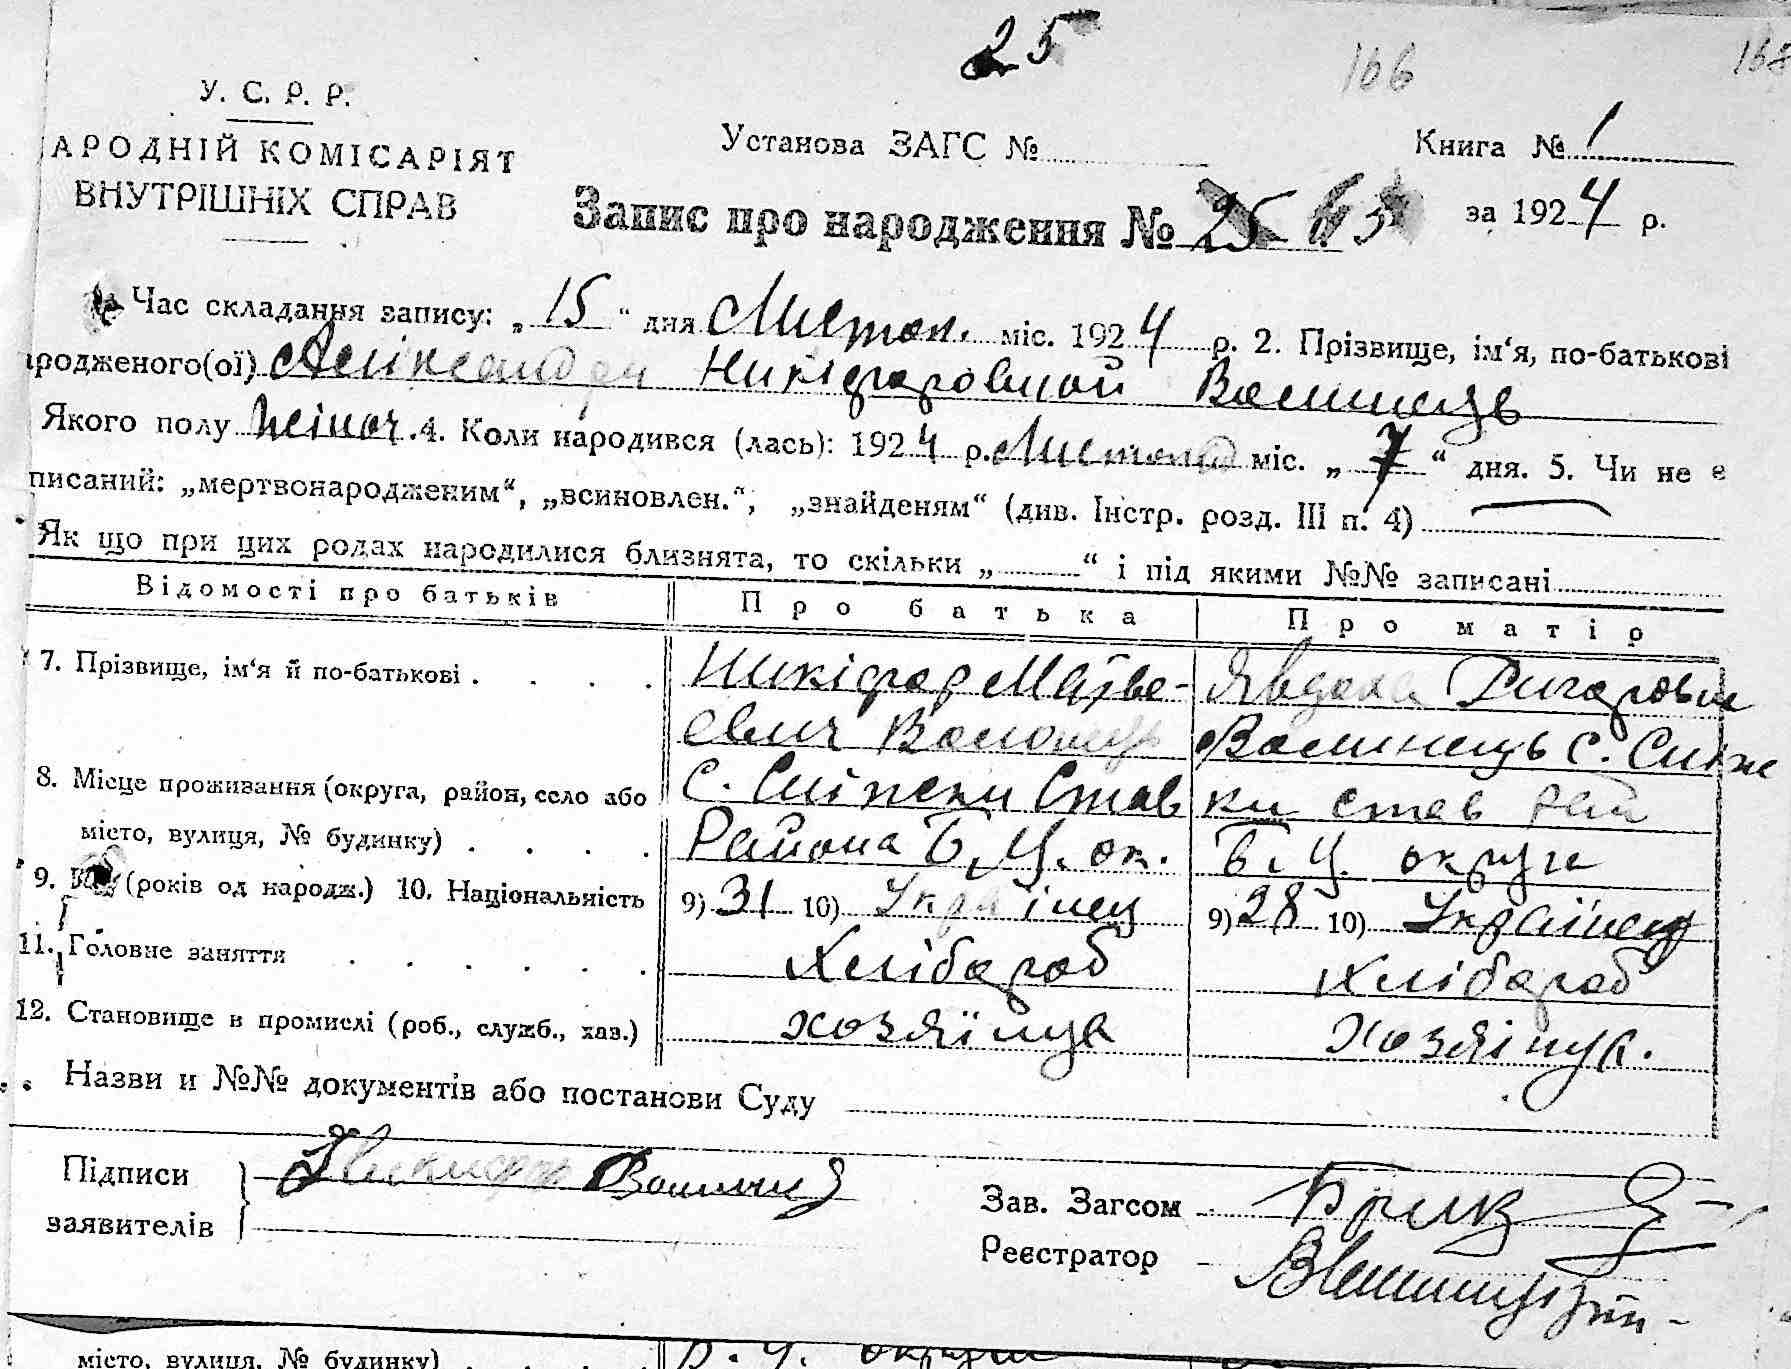 25
166
168
У. С. Р. Р.
АРОДНІЙ КОМІСАРІЯТ
ВНУТРІШНІХ СПРАВ
Установа ЗАГС №
Книга № 1
Запис про народження № 25
за 1924 р.
Час складання запису: „ 15 “ дня Листоп. міс. 1924 р. 2. Прізвище, ім‘я, по-батькові
ародженого(ої) Александра Никіфоровной Волинець
Якого полу жіноч. 4. Коли народився (лась): 1924 р. Листопад міс. „ 7 “ дня. 5. Чи не є
писаний: „мертвонародженим“, „всиновлен.“, „знайденям“ (див. Інстр. розд. III п. 4)
Як що при цих родах народилися близнята, то скільки „ “ і під якими №№ записані
Відомості про батьків Про батька Про матір
7. Прізвище, ім‘я й по-батькові Никіфор Матве- Явдоха Григоровна
евич Волинець Волинець с. Сніж
8. Місце проживання (округа, район, село або с. Сніжки Став ки став рай
місто, вулиця, № будинку) Района Б. Ц. ок. Б. Ц. округи
9. Вік (років од народж.) 10. Національність 9) 31 10) Українец 9) 28 10) Українец
11. Головне заняття Хлібороб Хлібороб
12. Становище в промислі (роб., служб., хаз.) хозяїнув хозяінув.
Назви и №№ документів або постанови Суду
Підписи Никифор Волинец
заявителів
Зав. Загсом
Реєстратор
місто, вулиця, № будинку) Б. Ц. округи